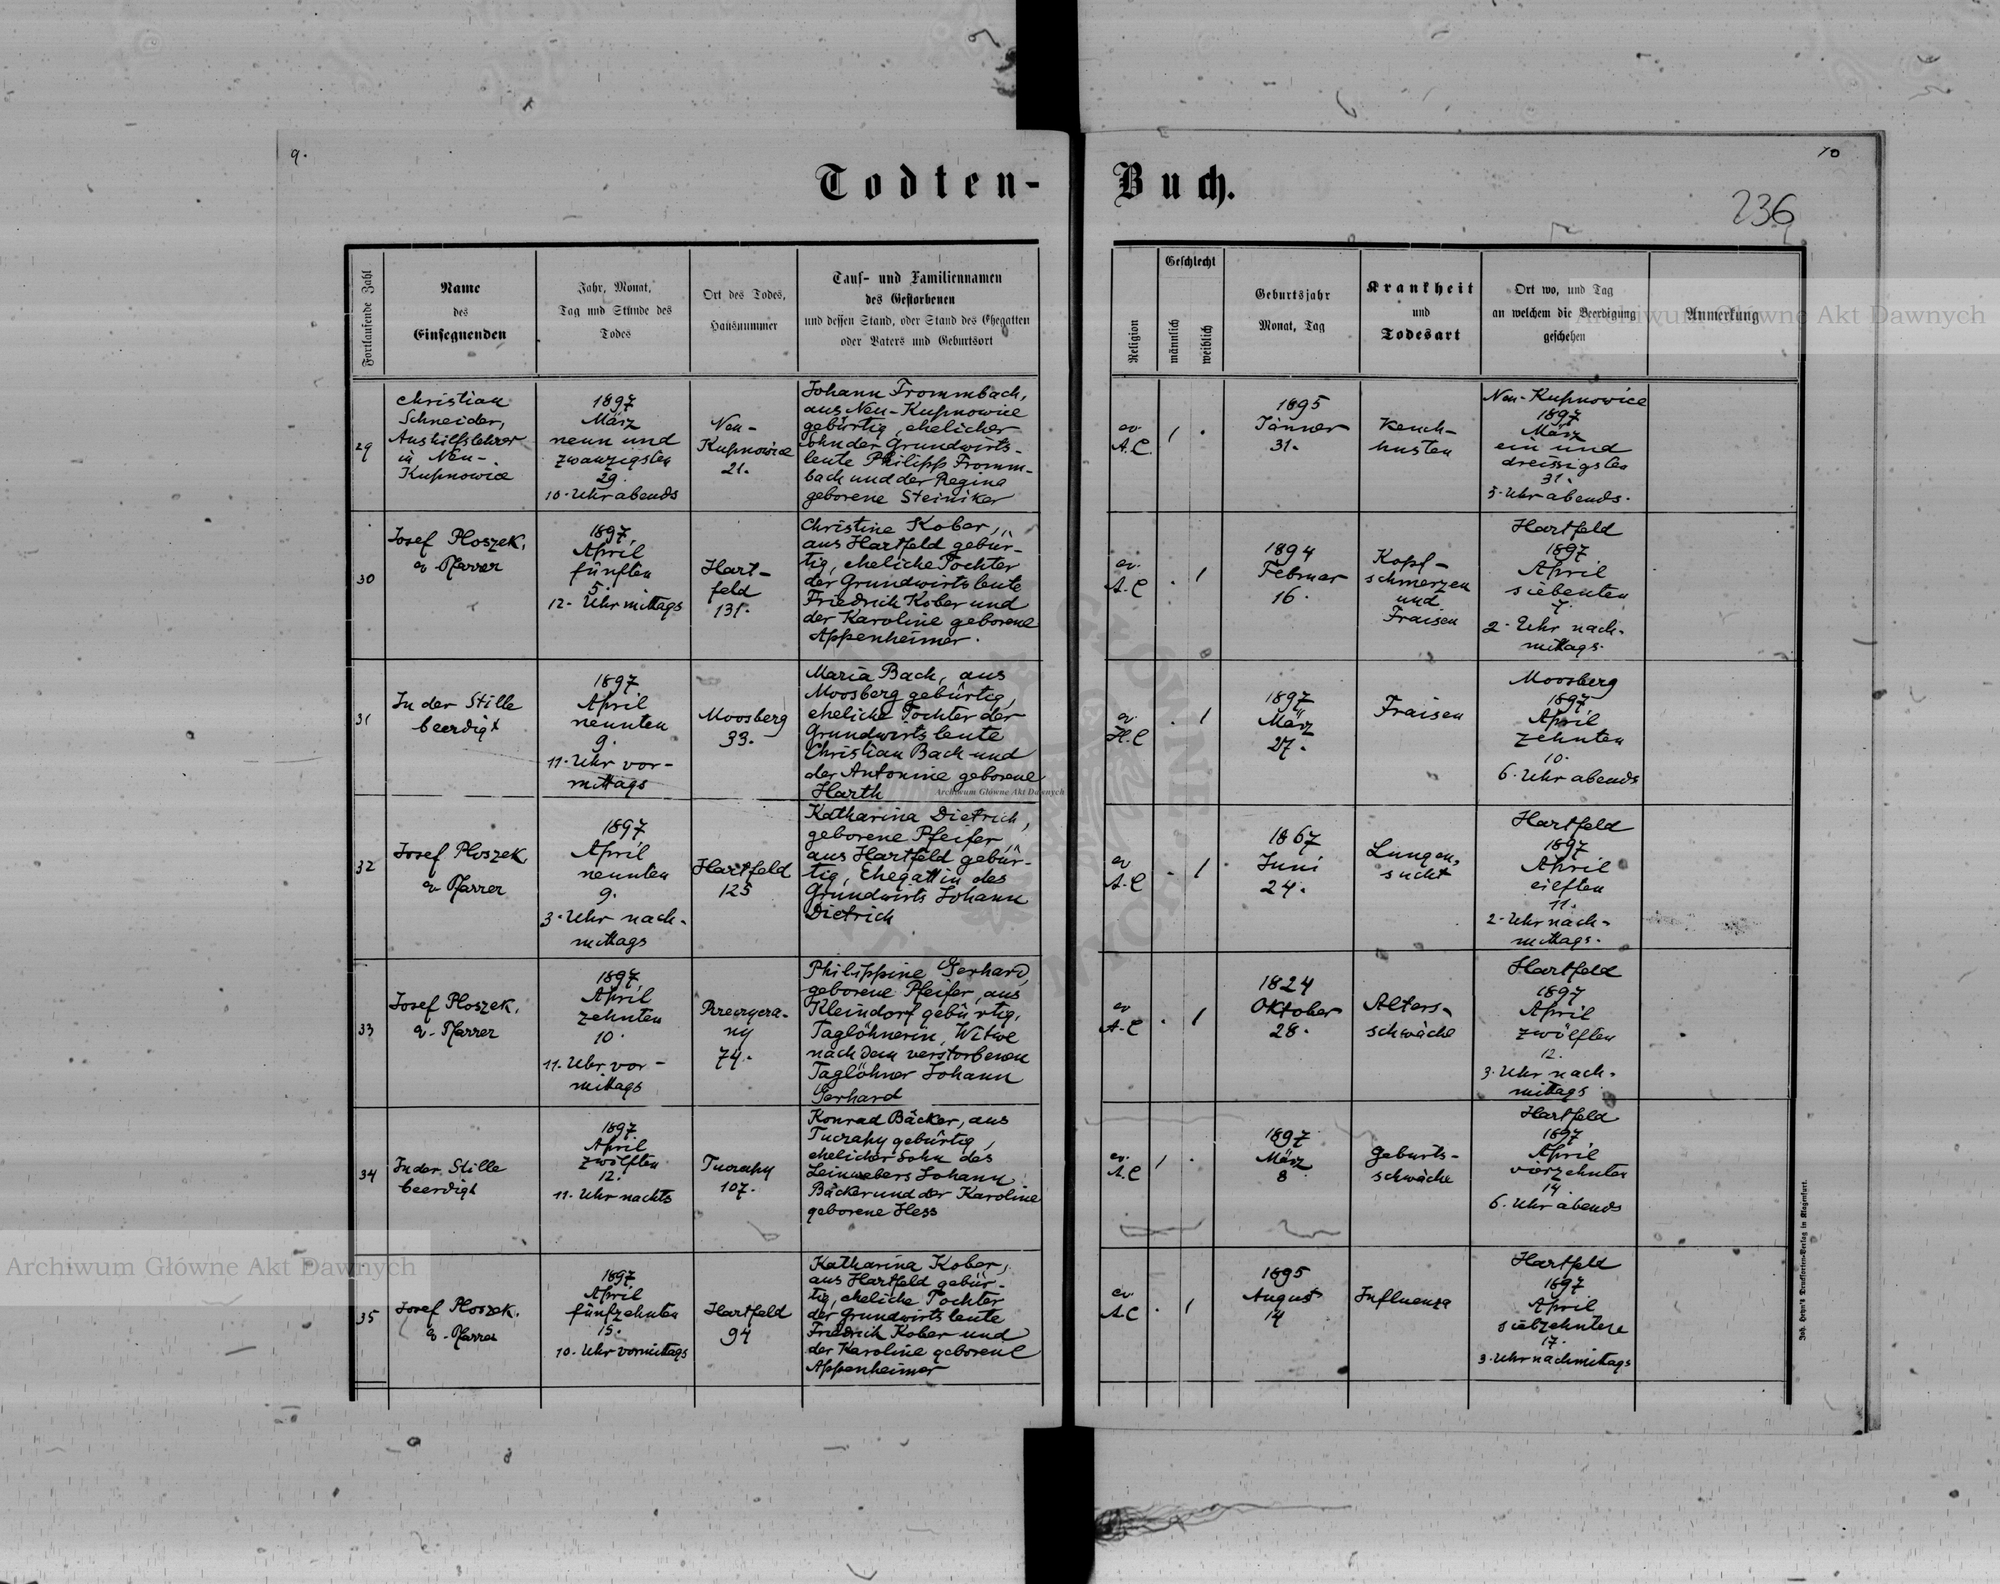 9.
10
236
Todten-Buch.
Fortlaufende Zahl
Name
des
Einsegnenden
Jahr, Monat,
Tag und Stunde des
Todes
Ort des Todes,
Hausnummer
Tauf- und Familiennamen
des Gestorbenen
und dessen Stand, oder Stand des Ehegatten
oder Vaters und Geburtsort
Religion
Geschlecht
männlich
weiblich
Geburtsjahr
Monat, Tag
Krankheit
und
Todesart
Ort wo, und Tag
an welchem die Beerdigung
geschehen
Anmerkung
29
Christian
Schneider,
Aushilfslehrer
in Neu-
Kupnowice
1897
März
neun und
zwanzigsten
29.
10. Uhr abends
Neu-
Kupnowice
21.
Johann Frommbach,
aus Neu-Kupnowice
gebürtig, ehelicher
Sohn der Grundwirts-
leute Philipp Fromm-
bach und der Regina
geborene Steiniker
ev.
A.C.
1
.
1895
Jänner
31.
Keuch-
husten
Neu-Kupnowice
1897
März
ein und
dreissigsten
31.
5. Uhr abends.
30
Josef Ploszek,
ev. Pfarrer
1897,
April
fünften
5.
12. Uhr mittags
Hart-
feld
131.
Christine Kober,
aus Hartfeld gebür-
tig, eheliche Tochter
der Grundwirtsleute
Friedrich Kober und
der Karoline geborene
Appenheimer.
ev.
A.C
.
1
1894
Februar
16.
Kopf-
schmerzen
und
Fraisen
Hartfeld
1897
April
siebenten
7.
2. Uhr nach-
mittags.
31
In der Stille
beerdigt
1897
April
neunten
9.
11. Uhr vor-
mittags
Moosberg
33.
Maria Bach, aus
Moosberg gebürtig,
eheliche Tochter der
Grundwirtsleute
Christian Bach und
der Antonine geborene
Harth
ev.
H.C
.
1
1897
März
27.
Fraisen
Moosberg
1897,
April
zehnten
10.
6. Uhr abends
32
Josef Ploszek
ev. Pfarrer
1897
April
neunten
9.
3. Uhr nach-
mittags
Hartfeld
125
Katharina Dietrich,
geborene Pfeifer,
aus Hartfeld gebür-
tig, Ehegattin des
Grundwirts Johann
Dietrich
ev
A.C
.
1
1867
Juni
24.
Lungen-
sucht
Hartfeld
1897
April
eilften
11.
2. Uhr nach-
mittags.
33
Josef Ploszek,
ev. Pfarrer
1897,
April
zehnten
10.
11. Uhr vor-
mittags
74.
Philippine Gerhard,
geborene Pfeifer, aus
Kleindorf gebürtig,
Taglöhnerin, Witwe
nach dem verstorbenen
Taglöhner Johann
Gerhard
ev
A.C
.
1
1824
Oktober
28.
Alters-
schwäche
Hartfeld
1897
April
zwölften
12.
3. Uhr nach-
mittags
34
In der Stille
beerdigt
1897
April
zwölften
12.
11. Uhr nachts
Tuczapy
107.
Konrad Bäcker, aus
Tuczapy gebürtig,
ehelicher Sohn des
Leinwebers Johann
Bäcker und der Karoline
geborene Hess
ev.
A.C
1
.
1897
März
8
Geburts-
schwäche
Hartfeld
1897
April
vierzehnten
14.
6. Uhr abends
35
Josef Ploszek,
ev. Pfarrer
1897
April
fünfzehnten
15.
10. Uhr vormittags
Hartfeld
94
Katharina Kober,
aus Hartfeld gebür-
tig, eheliche Tochter
der Grundwirtsleute
Friedrich Kober und
der Karoline geborene
Appenheimer
ev
A.C
.
1
1895
August
14
Influenza
Hartfeld
1897
April
siebzehnten
17.
3. Uhr nachmittags
Archiwum Główne Akt Dawnych
Archiwum Główne Akt Dawnych
Archiwum Główne Akt Dawnych